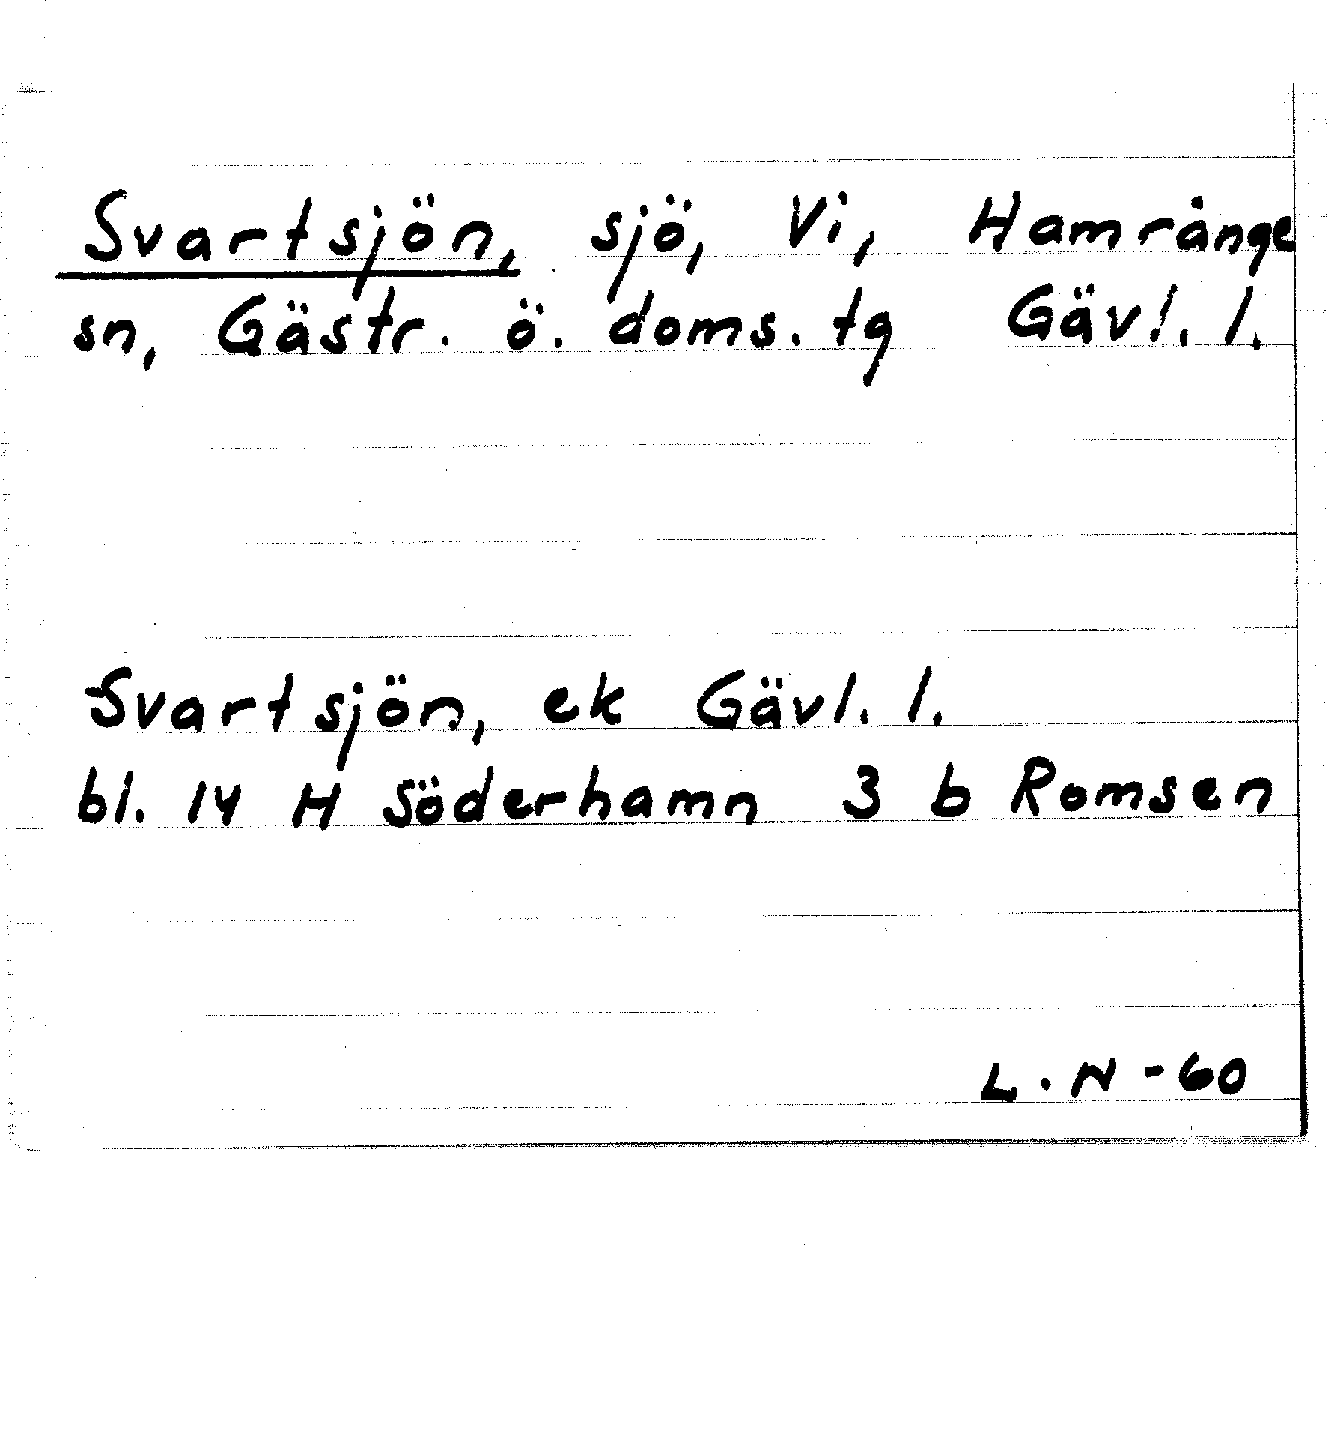 Svartsjön, sjö, Vi, Hamrånge
sn, Gästr. ö. doms. tg Gävl. l.
Svartsjön, ek Gävl. l.
bl. 14 H Söderhamn 3 b Romsen
L. N -60